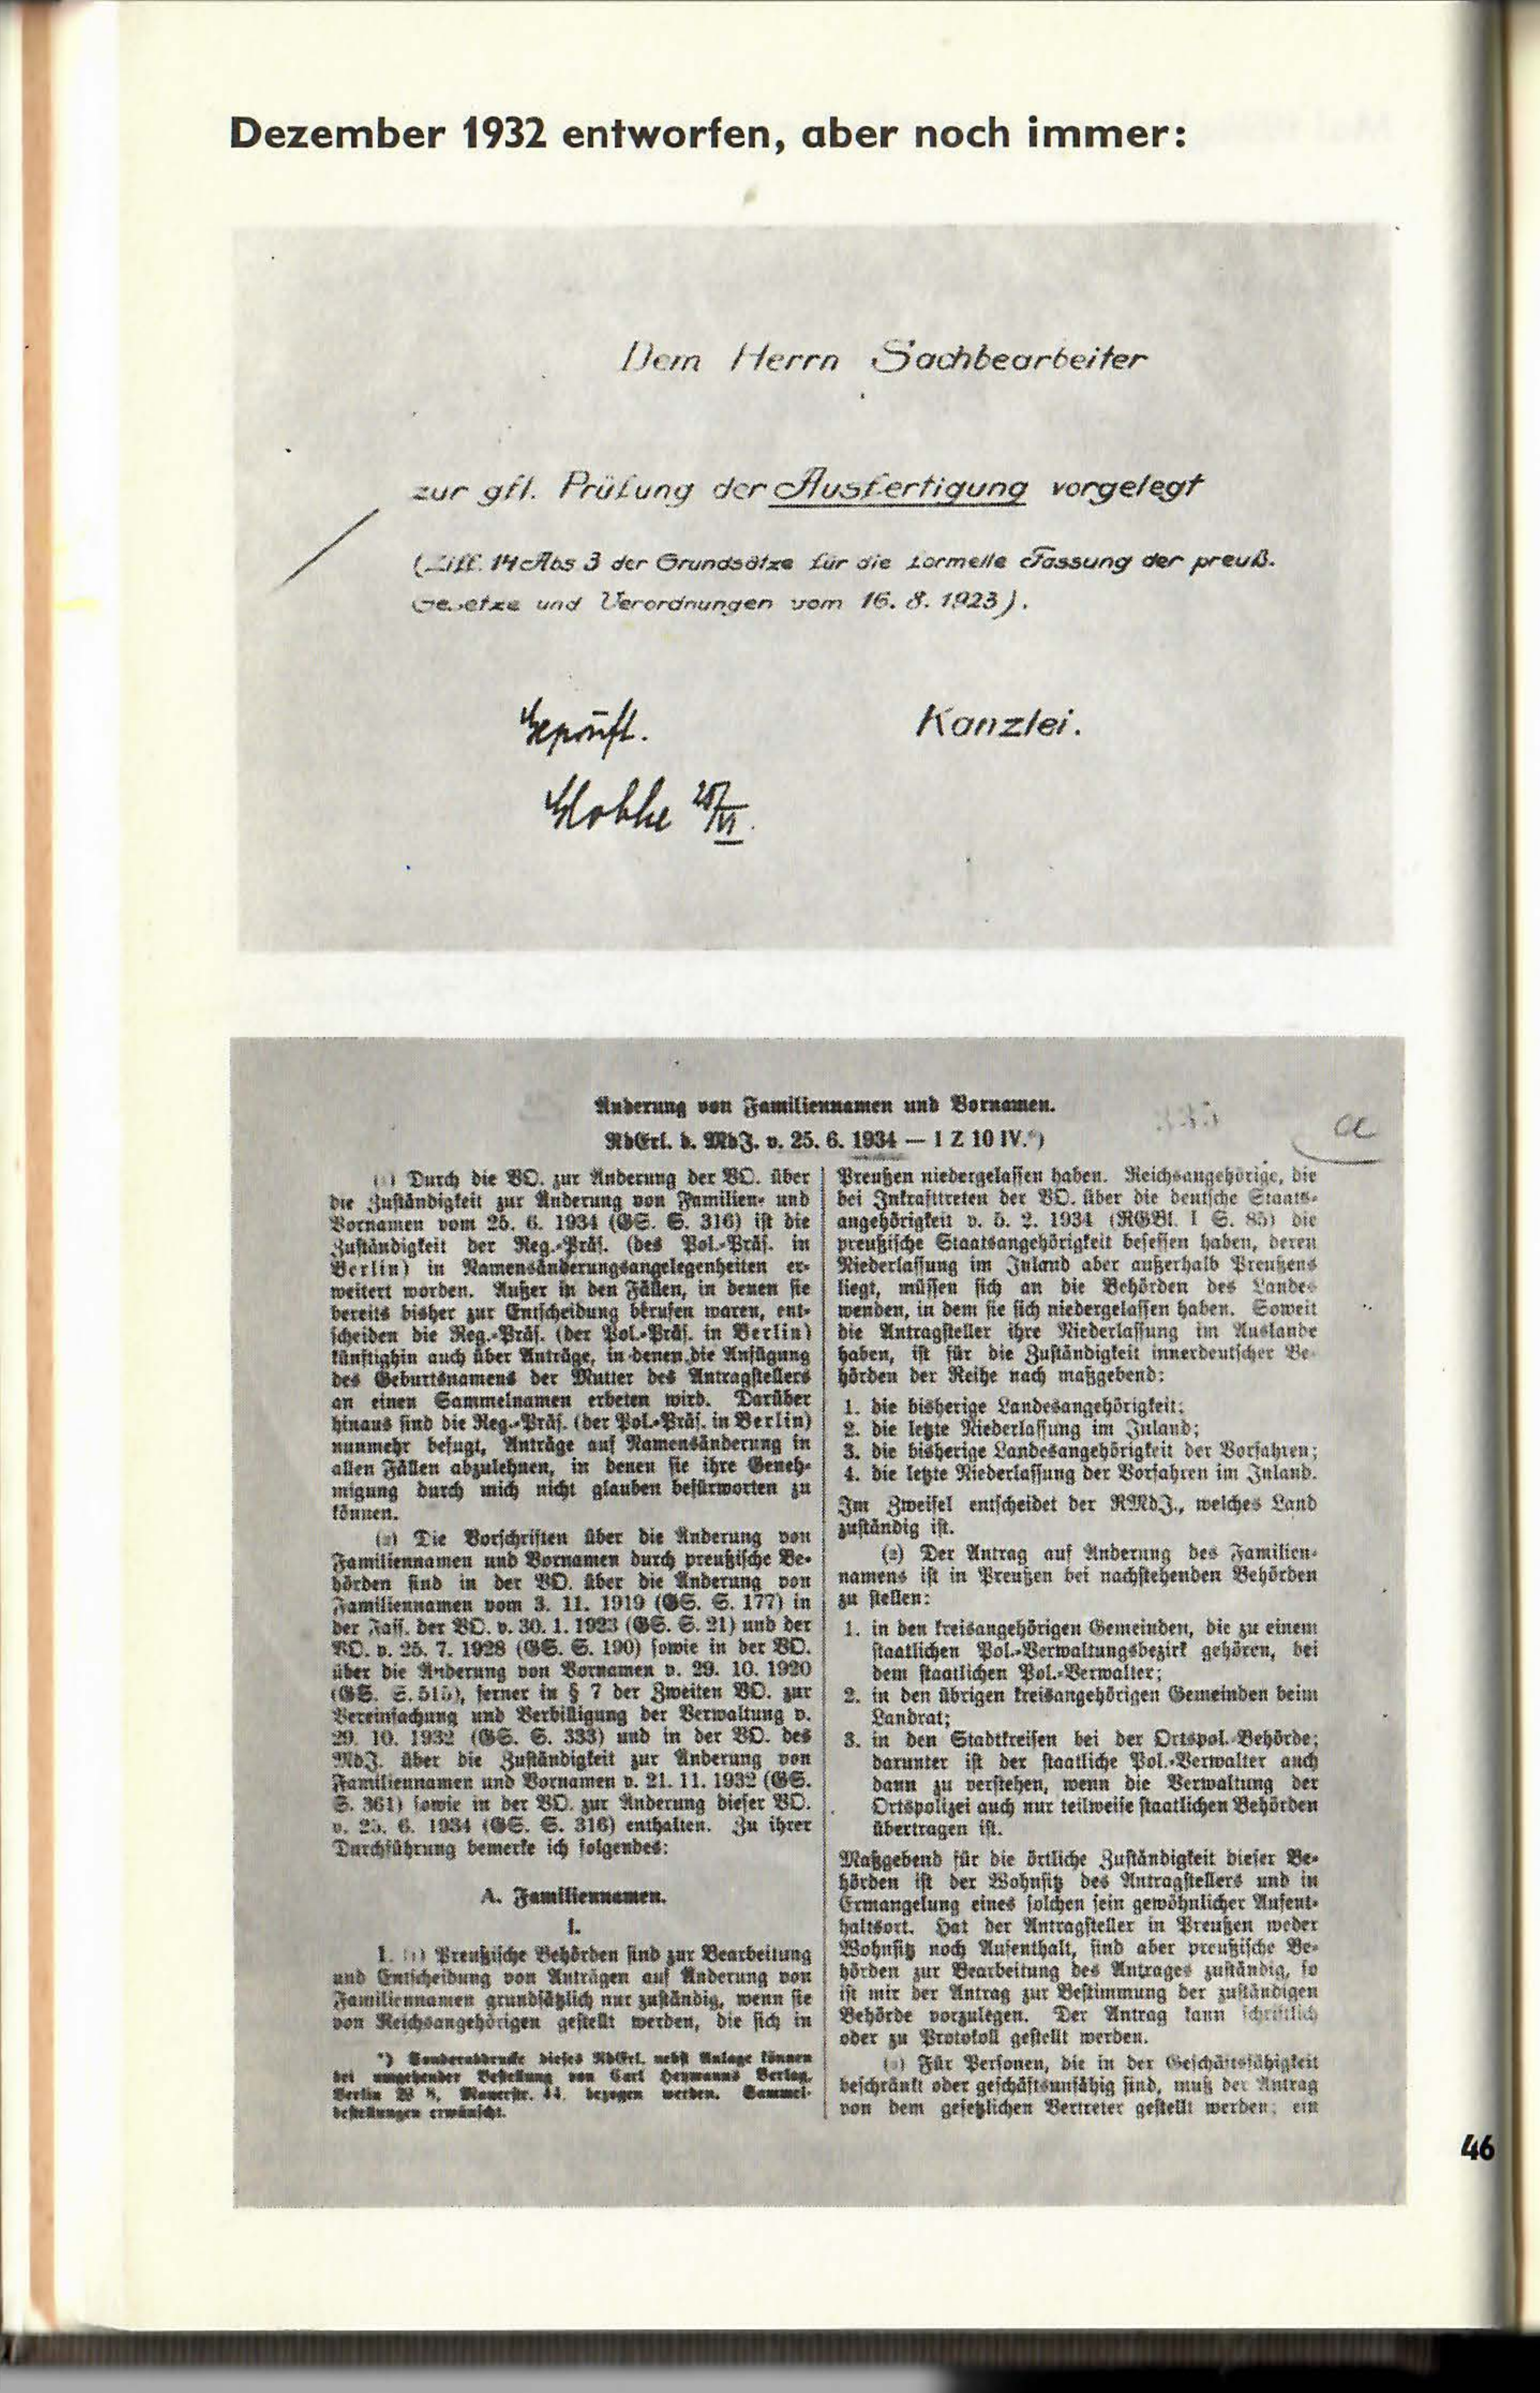 Dezember 1932 entworfen, aber noch immer:
Dem Herrn Sachbearbeiter
zur gfl. Prüfung der Ausfertigung vorgelegt
(Ziff. 14 Abs 3 der Grundsätze für die formelle Fassung der preuß.
Gesetze und Verordnungen vom 16. 8. 1923).
Geprüft.
Kanzlei.
Globke
Änderung von Familiennamen und Vornamen.
RdErl. d. MdJ. v. 25. 6. 1934 — I Z 10 IV.*)
a
(1) Durch die VO. zur Änderung der VO. über
die Zuständigkeit zur Änderung von Familien- und
Vornamen vom 25. 6. 1934 (GS. S. 316) ist die
Zuständigkeit der Reg.-Präs. (des Pol.-Präs. in
Berlin) in Namensänderungsangelegenheiten er-
weitert worden. Außer in den Fällen, in denen sie
bereits bisher zur Entscheidung berufen waren, ent-
scheiden die Reg.-Präs. (der Pol.-Präs. in Berlin)
künftighin auch über Anträge, in denen die Anfügung
des Geburtsnamens der Mutter des Antragstellers
an einen Sammelnamen erbeten wird. Darüber
hinaus sind die Reg.-Präs. (der Pol.-Präs. in Berlin)
nunmehr befugt, Anträge auf Namensänderung in
allen Fällen abzulehnen, in denen sie ihre Geneh-
migung durch mich nicht glauben befürworten zu
können.
(2) Die Vorschriften über die Änderung von
Familiennamen und Vornamen durch preußische Be-
hörden sind in der VO. über die Änderung von
Familiennamen vom 3. 11. 1919 (GS. S. 177) in
der Fass. der VO. v. 30. 1. 1923 (GS. S. 21) und der
VO. v. 25. 7. 1928 (GS. S. 190) sowie in der VO.
über die Änderung von Vornamen v. 29. 10. 1920
(GS. S. 515), ferner in § 7 der Zweiten VO. zur
Vereinfachung und Verbilligung der Verwaltung v.
29. 10. 1932 (GS. S. 333) und in der VO. des
MdJ. über die Zuständigkeit zur Änderung von
Familiennamen und Vornamen v. 21. 11. 1932 (GS.
S. 361) sowie in der VO. zur Änderung dieser VO.
v. 25. 6. 1934 (GS. S. 316) enthalten. Zu ihrer
Durchführung bemerke ich folgendes:
A. Familiennamen.
I.
1. (1) Preußische Behörden sind zur Bearbeitung
und Entscheidung von Anträgen auf Änderung von
Familiennamen grundsätzlich nur zuständig, wenn sie
von Reichsangehörigen gestellt werden, die sich in
*) Sonderabdrucke dieses RdErl. nebst Anlage können
bei umgehender Bestellung von Carl Heymanns Verlag,
Berlin W 8, Mauerstr. 44, bezogen werden. Sammel-
bestellungen erwünscht.
Preußen niedergelassen haben. Reichsangehörige, die
bei Inkrafttreten der VO. über die deutsche Staats-
angehörigkeit v. 5. 2. 1934 (RGBl. I S. 85) die
preußische Staatsangehörigkeit besessen haben, deren
Niederlassung im Inland aber außerhalb Preußens
liegt, müssen sich an die Behörden des Landes
wenden, in dem sie sich niedergelassen haben. Soweit
die Antragsteller ihre Niederlassung im Auslande
haben, ist für die Zuständigkeit innerdeutscher Be-
hörden der Reihe nach maßgebend:
1. die bisherige Landesangehörigkeit;
2. die letzte Niederlassung im Inland;
3. die bisherige Landesangehörigkeit der Vorfahren;
4. die letzte Niederlassung der Vorfahren im Inland.
Im Zweifel entscheidet der RMdJ., welches Land
zuständig ist.
(2) Der Antrag auf Änderung des Familien-
namens ist in Preußen bei nachstehenden Behörden
zu stellen:
1. in den kreisangehörigen Gemeinden, die zu einem
staatlichen Pol.-Verwaltungsbezirk gehören, bei
dem staatlichen Pol.-Verwalter;
2. in den übrigen kreisangehörigen Gemeinden beim
Landrat;
3. in den Stadtkreisen bei der Ortspol.-Behörde;
darunter ist der staatliche Pol.-Verwalter auch
dann zu verstehen, wenn die Verwaltung der
Ortspolizei auch nur teilweise staatlichen Behörden
übertragen ist.
Maßgebend für die örtliche Zuständigkeit dieser Be-
hörden ist der Wohnsitz des Antragstellers und in
Ermangelung eines solchen sein gewöhnlicher Aufent-
haltsort. Hat der Antragsteller in Preußen weder
Wohnsitz noch Aufenthalt, sind aber preußische Be-
hörden zur Bearbeitung des Antrages zuständig, so
ist mir der Antrag zur Bestimmung der zuständigen
Behörde vorzulegen. Der Antrag kann schriftlich
oder zu Protokoll gestellt werden.
(3) Für Personen, die in der Geschäftsfähigkeit
beschränkt oder geschäftsunfähig sind, muß der Antrag
von dem gesetzlichen Vertreter gestellt werden; ein
46